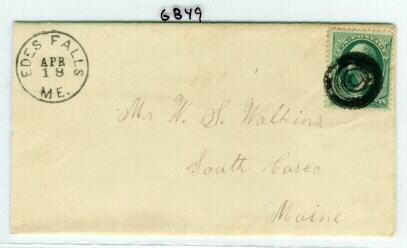 6849
EDES FALLS
APR
18
ME.
Mr W. S. Watkins
South Casco
Maine